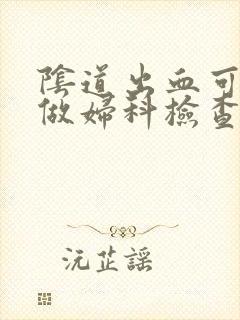 陰道出血可
做婦科檢查
沅芷謠